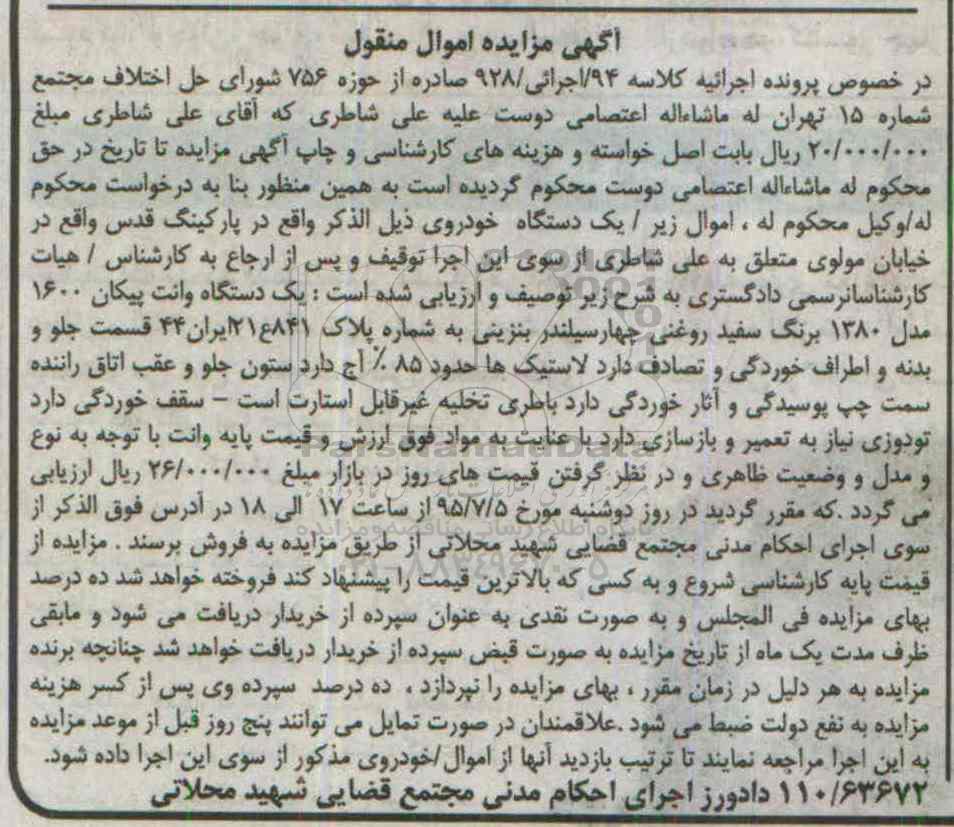 آگهی مزایده اموال منقول
در خصوص پرونده اجرائیه کلاسه ۹۴/اجرائی/۹۲۸ صادره از حوزه ۷۵۶ شورای حل اختلاف مجتمع
شماره ۱۵ تهران له ماشاءاله اعتصامی دوست علیه علی شاطری که آقای علی شاطری مبلغ
۲۰/۰۰۰/۰۰۰ ریال بابت اصل خواسته و هزینه های کارشناسی و چاپ آگهی مزایده تا تاریخ در حق
محکوم له ماشاءاله اعتصامی دوست محکوم گردیده است به همین منظور بنا به درخواست محکوم
له/وکیل محکوم له ، اموال زیر / یک دستگاه خودروی ذیل الذکر واقع در پارکینگ قدس واقع در
خیابان مولوی متعلق به علی شاطری از سوی این اجرا توقیف و پس از ارجاع به کارشناس / هیات
کارشناسانرسمی دادگستری به شرح زیر توصیف و ارزیابی شده است : یک دستگاه وانت پیکان ۱۶۰۰
مدل ۱۳۸۰ برنگ سفید روغنی چهارسیلندر بنزینی به شماره پلاک ۸۴۱ع۲۱ایران۴۴ قسمت جلو و
بدنه و اطراف خوردگی و تصادف دارد لاستیک ها حدود ۸۵ ٪ آج دارد ستون جلو و عقب اتاق راننده
سمت چپ پوسیدگی و آثار خوردگی دارد باطری تخلیه غیرقابل استارت است – سقف خوردگی دارد
تودوزی نیاز به تعمیر و بازسازی دارد با عنایت به مواد فوق ارزش و قیمت پایه وانت با توجه به نوع
و مدل و وضعیت ظاهری و در نظر گرفتن قیمت های روز در بازار مبلغ ۲۶/۰۰۰/۰۰۰ ریال ارزیابی
می گردد .که مقرر گردید در روز دوشنبه مورخ ۹۵/۷/۵ از ساعت ۱۷ الی ۱۸ در آدرس فوق الذکر از
سوی اجرای احکام مدنی مجتمع قضایی شهید محلاتی از طریق مزایده به فروش برسند . مزایده از
قیمت پایه کارشناسی شروع و به کسی که بالاترین قیمت را پیشنهاد کند فروخته خواهد شد ده درصد
بهای مزایده فی المجلس و به صورت نقدی به عنوان سپرده از خریدار دریافت می شود و مابقی
ظرف مدت یک ماه از تاریخ مزایده به صورت قبض سپرده از خریدار دریافت خواهد شد چنانچه برنده
مزایده به هر دلیل در زمان مقرر ، بهای مزایده را نپردازد ، ده درصد سپرده وی پس از کسر هزینه
مزایده به نفع دولت ضبط می شود .علاقمندان در صورت تمایل می توانند پنج روز قبل از موعد مزایده
به این اجرا مراجعه نمایند تا ترتیب بازدید آنها از اموال/خودروی مذکور از سوی این اجرا داده شود.
۱۱۰/۶۳۶۷۲ دادورز اجرای احکام مدنی مجتمع قضایی شهید محلاتی
ParsNamadData